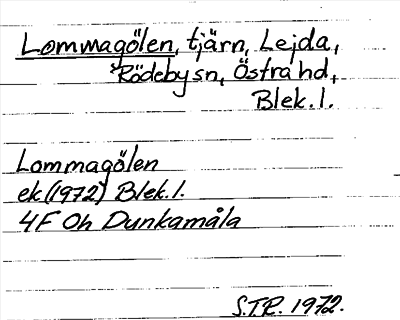 Lommagölen, tjärn, Lejda,
Rödeby sn, Östra hd,
Blek. l.
Lommagölen
ek (1972) Blek. l.
4F Oh Dunkamåla
S.T.R. 1972.